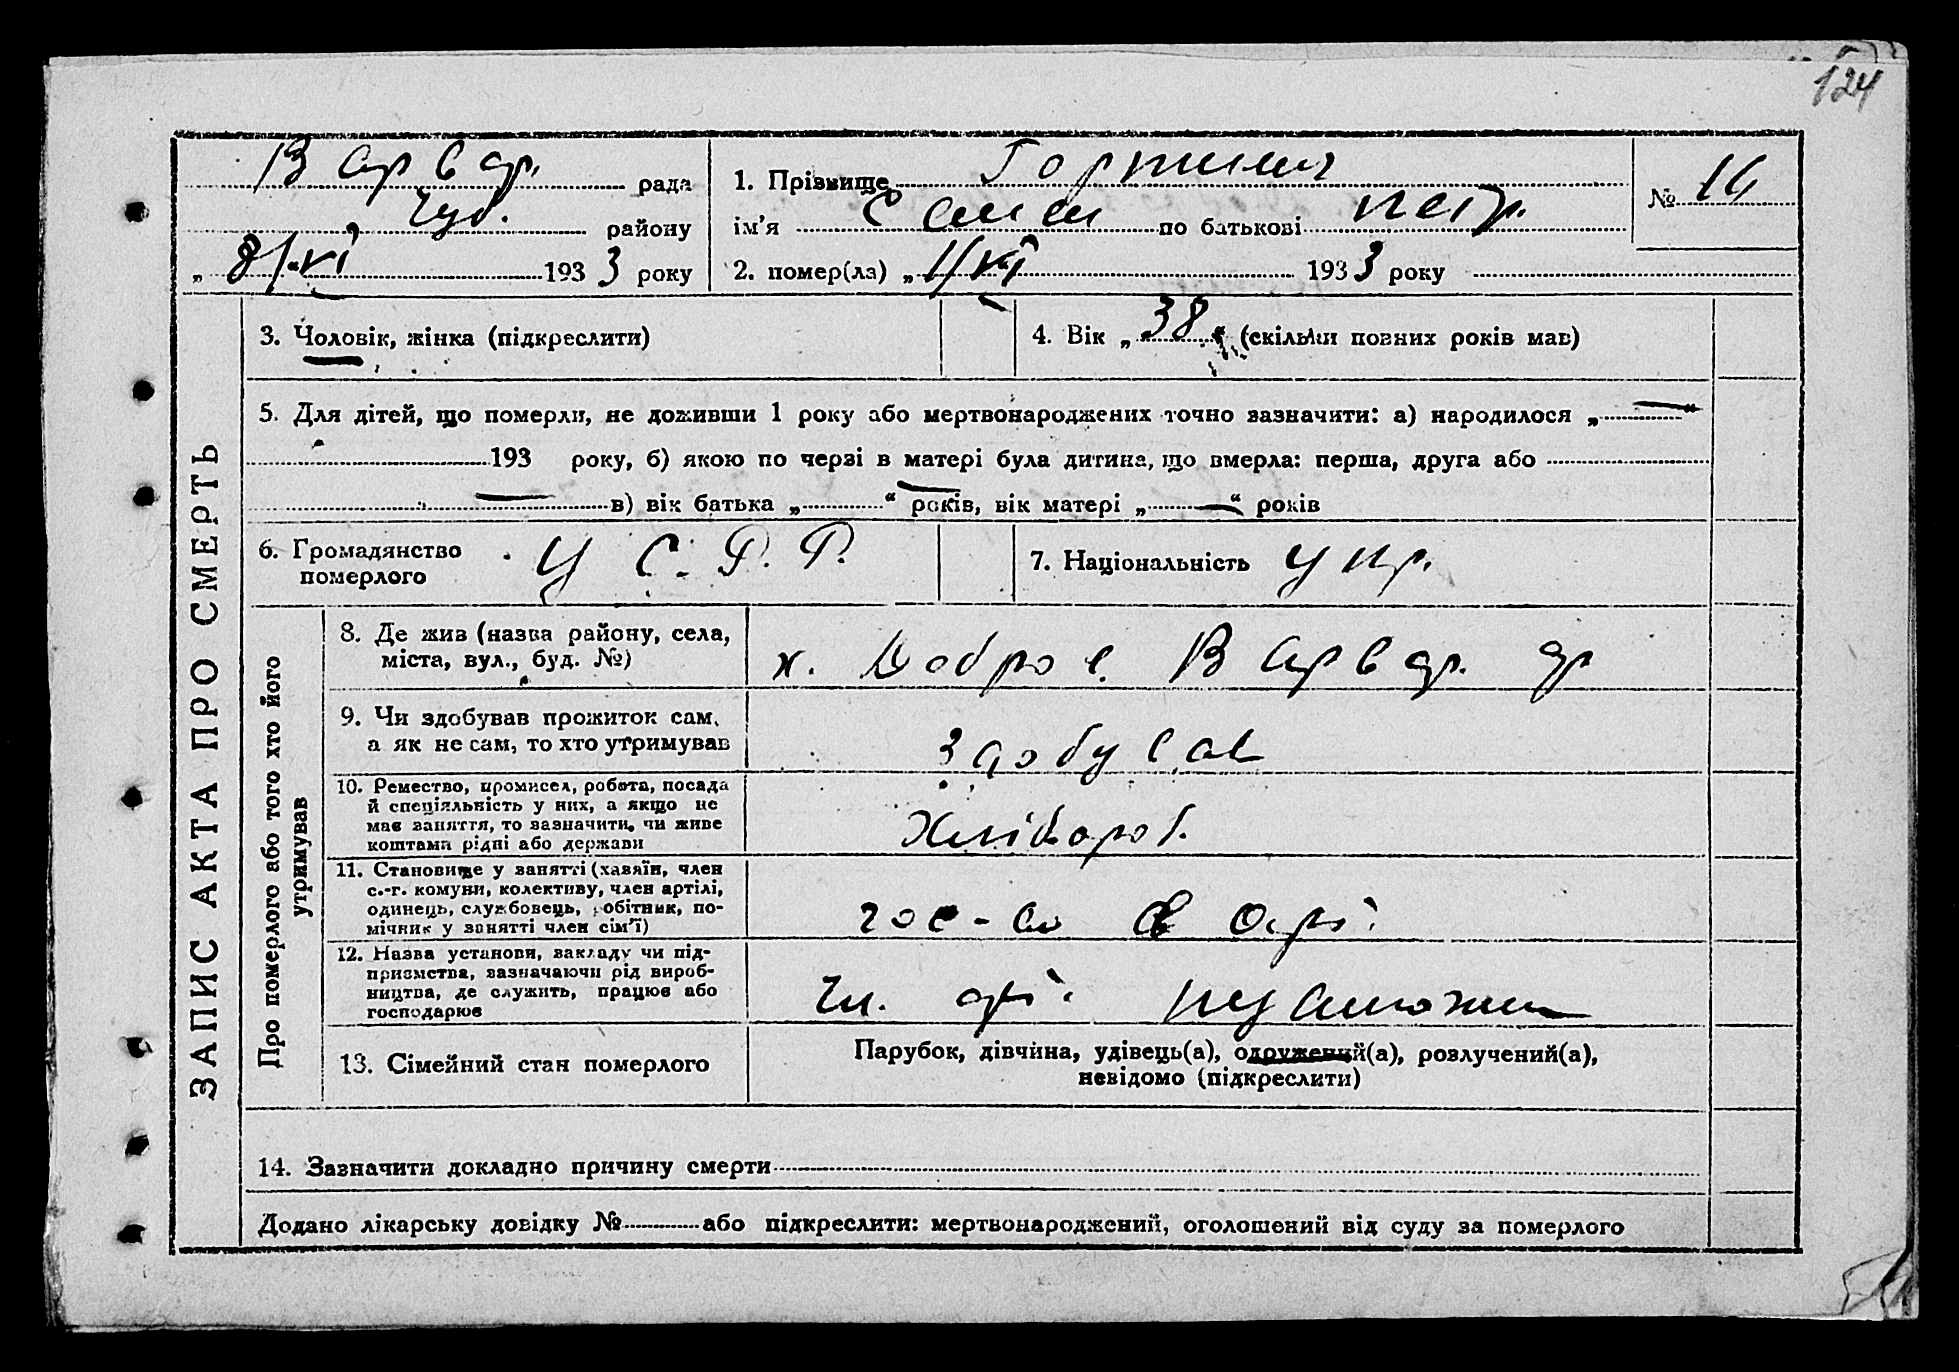 124
Варвар. рада
Чуб. району
„ 8/VI 1933 року
1. Прізвище
ім’я по батькові Петр.
2. помер(ла) „ 1/VI 1933 року
№ 16
3. Чоловік, жінка (підкреслити)
4. Вік „ 38 “ (скільки повних років мав)
5. Для дітей, що померли, не доживши 1 року або мертвонароджених точно зазначити: а) народилося „ — “
193 року, б) якою по черзі в матері була дитина, що вмерла: перша, друга або
— в) вік батька „ — “ років, вік матері „ — “ років
6. Громадянство
померлого
У С. Р. Р.
7. Національність укр.
ЗАПИС АКТА ПРО СМЕРТЬ
Про померлого або того хто його
утримував
8. Де жив (назва району, села,
міста, вул., буд. №)
х. Доброе Варвар. др
9. Чи здобував прожиток сам,
а як не сам, то хто утримував
Здобував
10. Ремество, промисел, робота, посада
й спеціяльність у них, а якщо не
має заняття, то зазначити, чи живе
коштами рідні або держави
Хлібороб.
11. Становище у занятті (хазяїн, член
с.-г. комуни, колективу, член артілі,
одинець, службовець, робітник, по-
мічник у занятті член сім’ї)
гос-во в арт.
12. Назва установи, закладу чи під-
приємства, зазначаючи рід вироб-
ництва, де служить, працює або
господарює
Чл. арт.
13. Сімейний стан померлого
Парубок, дівчина, удівець(а), одружений(а), розлучений(а),
невідомо (підкреслити)
14. Зазначити докладно причину смерти
Додано лікарську довідку № або підкреслити: мертвонароджений, оголошений від суду за померлого